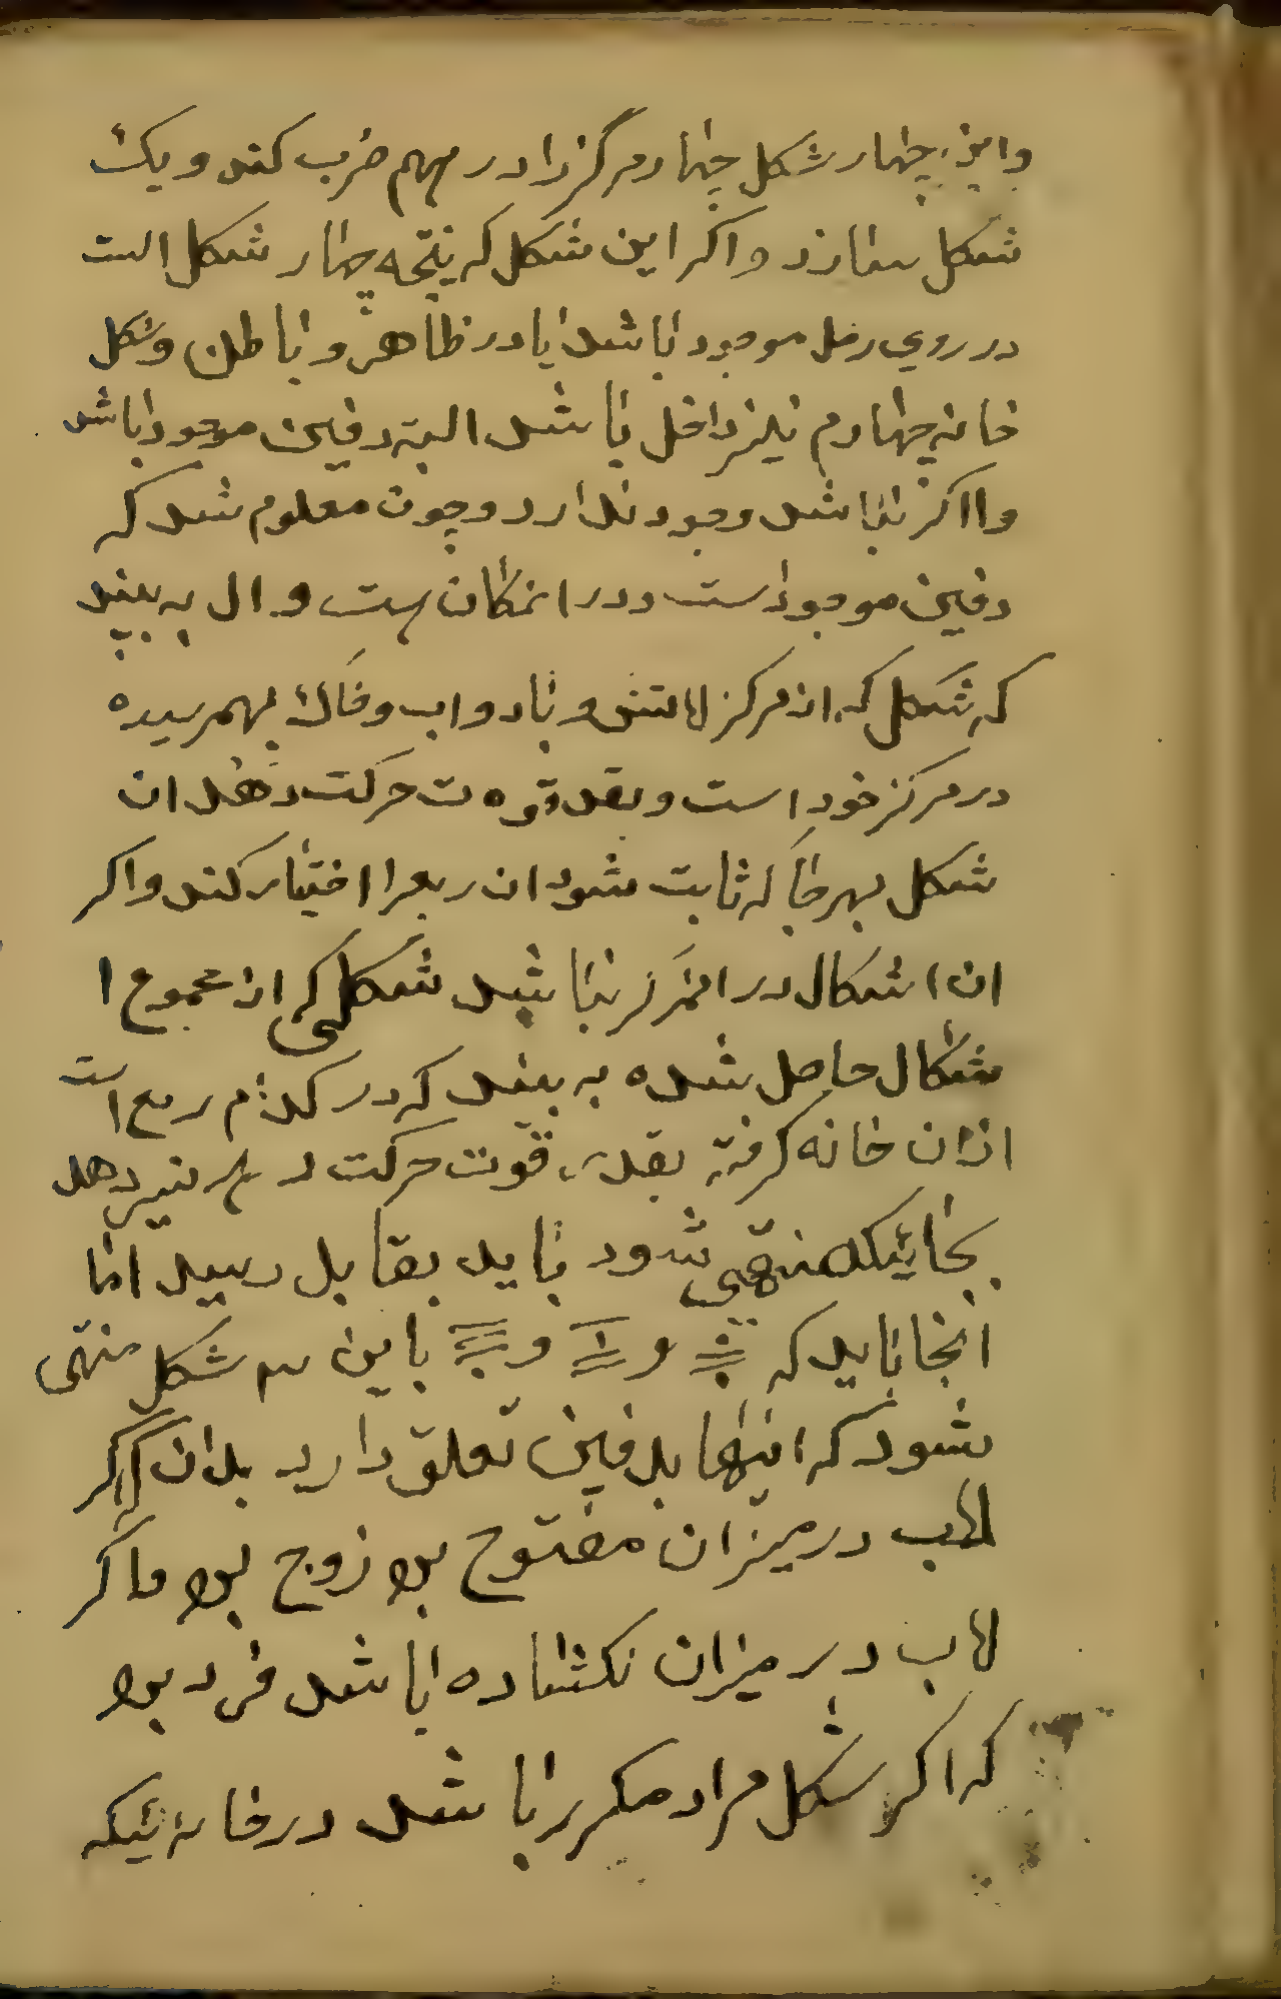 واین چهار شکل چهار مرکز را در مهم ضرب کند و یک
شکل سازد و اکر این شکل که نتیجه چهار شکل است
در روی رمل موجود باشد یا در ظاهر و باطن و شکل
خانه چهارم نیز داخل باشد البته دفین موجود باشد
و ااکر نباشد وجود ندارد و چون معلوم شد که
دفین موجود است و در انمکان هست و ال به بیند
که شکل که از مرکز اتش و باد و اب و خاک بهمرسیده
در مرکز خود است و بقد قوه ت حرکت دهد ان
شکل بهرجا که ثابت شود ان ربعرا اختیار کند و اکر
ان اشکال در انمرکز نباشد شکلی که از مجموع ا
شکال حاصل شده به بیند که در کدام ربع است
ازان خانه کرفته بقدر قوت حرکت دهد
بجائیکه منتهی شود باید بقابل رسید اما
انجا باید که و و باین سه شکل منتهی
شود که اینها بدفین تعلق دارد بدان که اکر
لاب در میزان مفتوح بود زوج بود و اکر
لاب در میزان نکشاده باشد فرد بود
که اکر شکل مراد مکرر باشد در خانه ئیکه